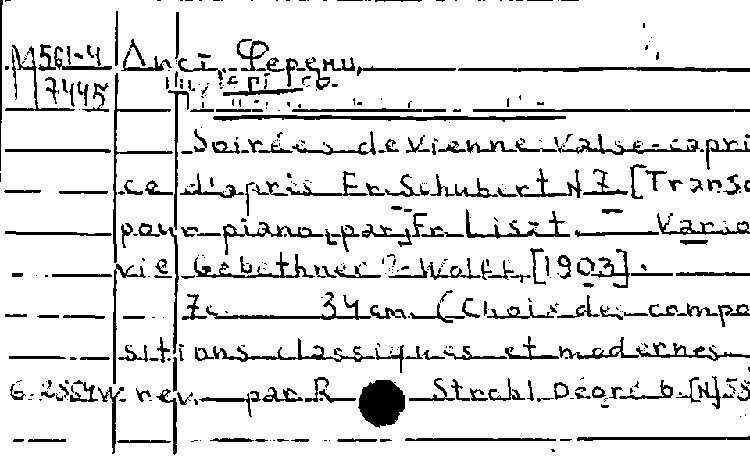 М561-4 Лист, Ференц,
7445
Soirées de Vienne. Valse-capri
ce d'après Fr. Schubert N 7. [Transc
pour piano, par] Fr. Liszt. Varso
vie, Gebethner & Wolff, [1903].
7c. 34 cm. (Choix des compo
sitions classiques et modernes
rev. par R Strobl. Degré 6. [N] 55